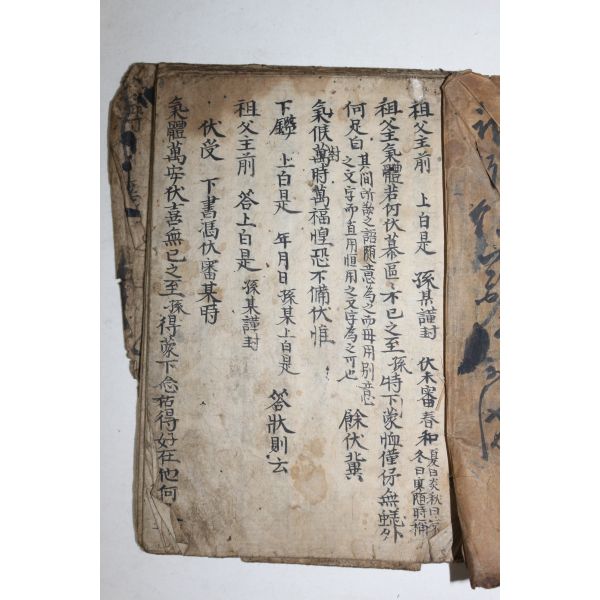 祖父主前 上白是 孫某謹封 伏未審春和夏曰炎秋曰 冬曰寒隨時稱
祖父主氣體若何伏慕區〻不已之至孫特下蒙恤僅保無 外
何足白 其間所發之語隨意爲之而毋用別意 之文字而直用恒用之文字爲之可也 餘伏冀
氣候對時萬福惶恐不備伏惟
下鑑 上白是 年月日孫某上白是 答狀則云
祖父主前 答上白是 孫某謹封
伏受 下書憑伏審某時
氣體萬安伏喜無已之至孫得蒙下念 得好在他何